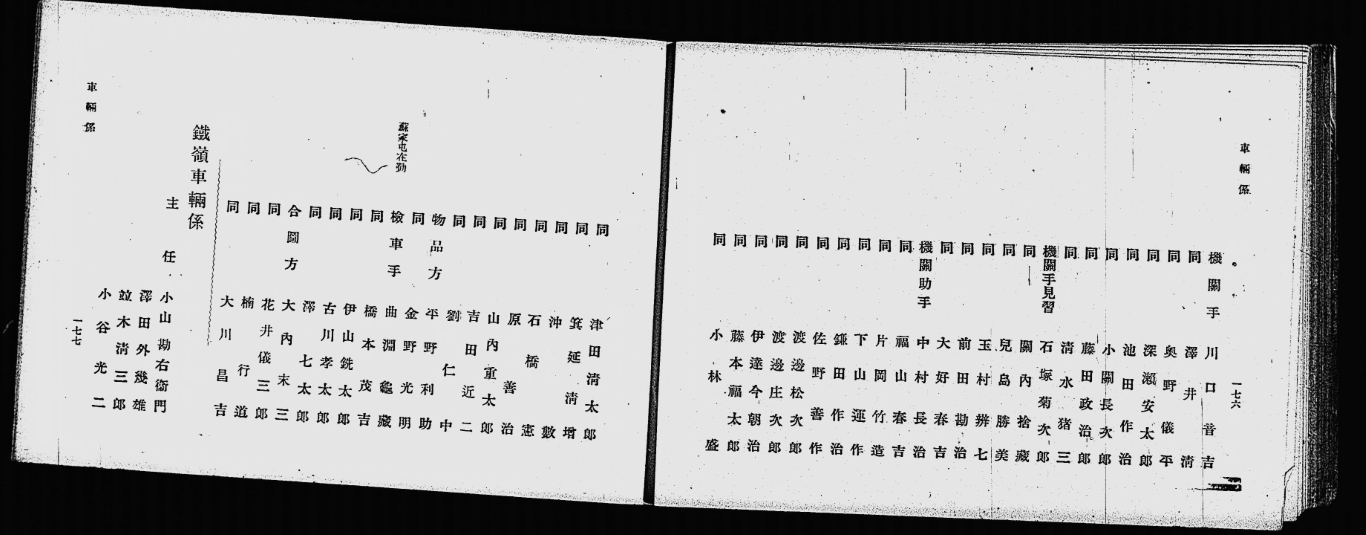 車輛係
一七六
機關手 川口音吉
同 澤井清
同 奥野儀平
同 深瀬安太郎
同 池田作治
同 小關長次郎
同 藤田政治郎
同 清水猪三
機關手見習 石塚菊次郎
同 關內捨藏
同 兒島勝美
同 玉村辨七
同 前田勘治
同 大好春吉
機關助手 中村長治
同 福山春吉
同 片岡竹造
同 下山運作
同 鎌田作治
同 佐野善作
同 渡邊松次郎
同 渡邊庄次郎
同 伊達今朝治
同 藤本福太郎
同 小林盛
同 津田清太郎
同 箕延清增
同 沖數
同 石橋憲
同 原善治
同 山內重太郎
同 吉田近二
同 劉仁中
物品方 平野利助
同 金野光明
檢車手 曲淵龜藏
同 橋本茂吉
同 伊山銑太郎
同 古川孝太郎
同 澤七太郎
合圖方 大內末三
同 花井儀三郎
同 楠行道
同 大川昌吉
蘇家屯在勤
鐵嶺車輛係
主任 小山勘右衞門
澤田外幾雄
竝木清三郎
小谷光二
車輛係
一七七